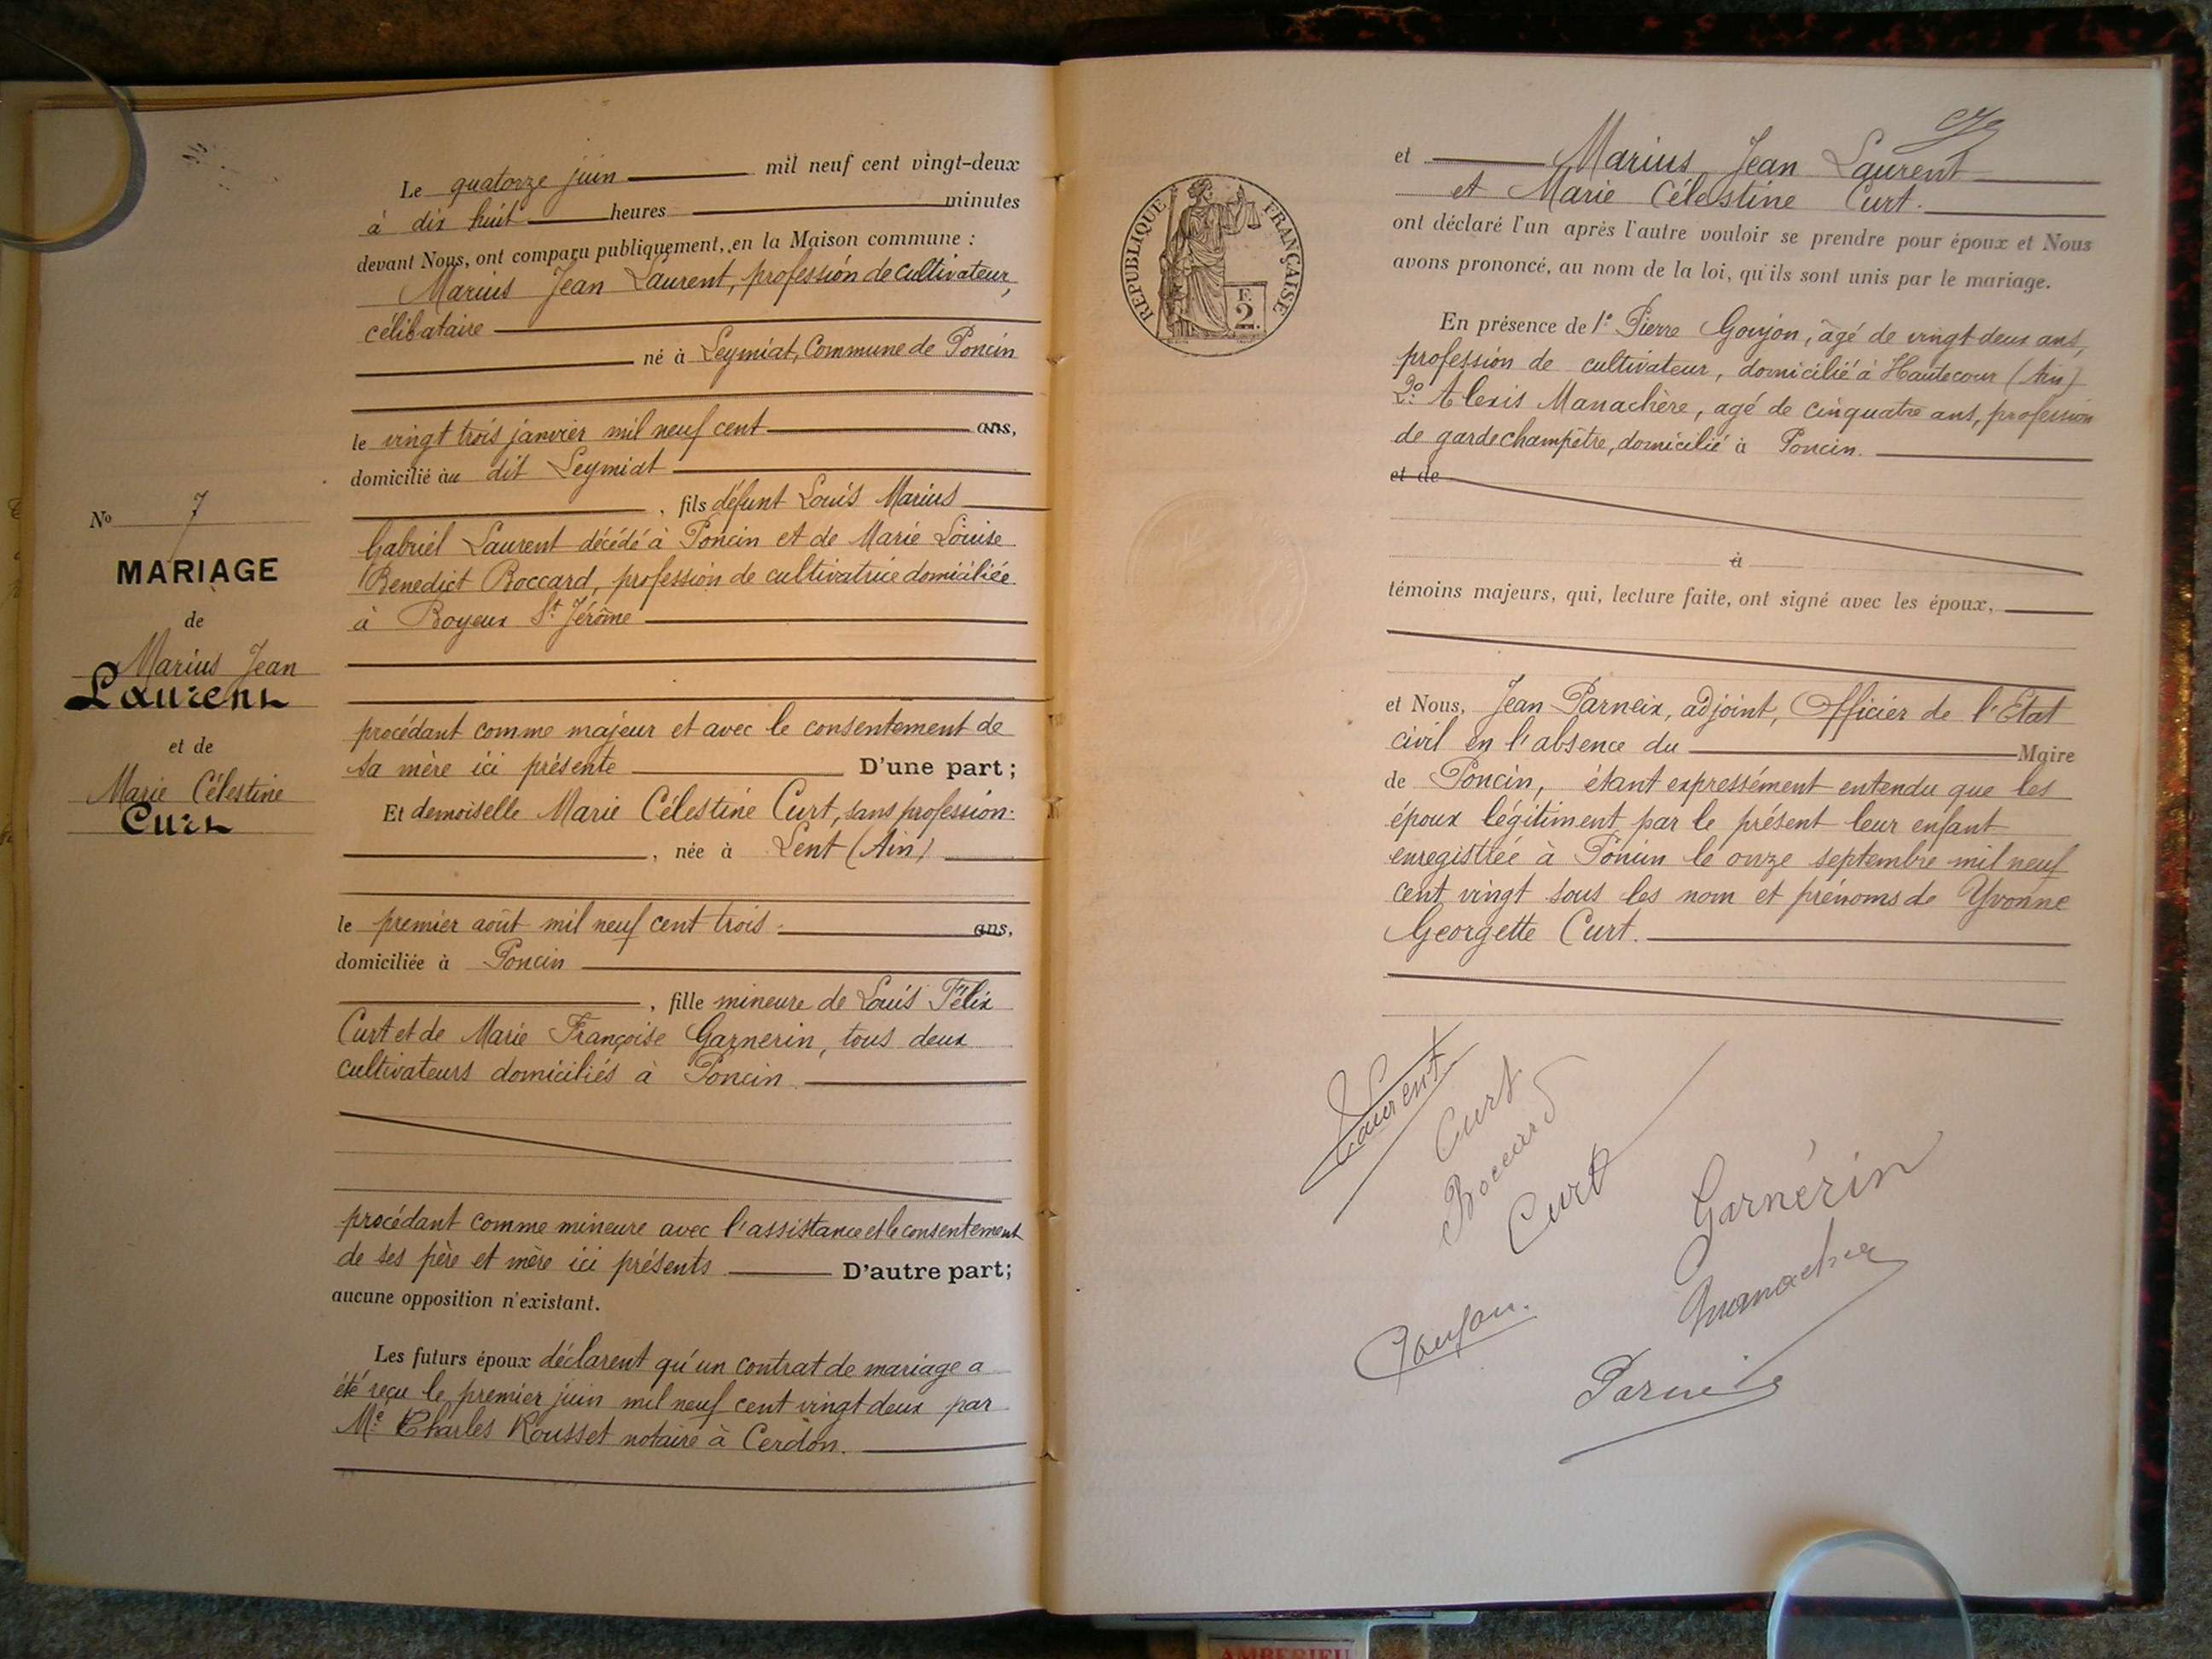 Le quatorze juin mil neuf cent vingt-deux
à dix huit heures minutes
devant Nous, ont comparu publiquement, en la Maison commune :
Marius Jean Laurent, profession de cultivateur,
célibataire
né à Leymiat, Commune de Poncin
le vingt trois janvier mil neuf cent ans,
domicilié au dit Leymiat
, fils défunt Louis Marius
Gabriel Laurent décédé à Poncin et de Marie Louise
Benedict Boccard, profession de cultivatrice domiciliée
à Boyeux St Jérôme
procédant comme majeur et avec le consentement de
sa mère ici présente D'une part ;
Et demoiselle Marie Célestine Curt, sans profession
, née à Lent (Ain)
le premier août mil neuf cent trois ans,
domiciliée à Poncin
, fille mineure de Louis Félix
Curt et de Marie Françoise Garnerin, tous deux
cultivateurs domiciliés à Poncin
procédant comme mineure avec l'assistance et le consentement
de ses père et mère ici présents D'autre part;
aucune opposition n'existant.
Les futurs époux déclarent qu'un contrat de mariage a
été reçu le premier juin mil neuf cent vingt deux par
Me Charles Rousset notaire à Cerdon.
No 7
MARIAGE
de
Marius Jean
Laurent
et de
Marie Célestine
Curt
RÉPUBLIQUE FRANÇAISE
F.
2.
et Marius Jean Laurent
et Marie Célestine Curt.
ont déclaré l'un après l'autre vouloir se prendre pour époux et Nous
avons prononcé, au nom de la loi, qu'ils sont unis par le mariage.
En présence de 1° Pierre Goujon, âgé de vingt deux ans,
profession de cultivateur, domicilié à Hautecour (Ain)
2° Alexis Manachère, agé de cinquatre ans, profession
de garde champêtre, domicilié à Poncin.
et de
à
témoins majeurs, qui, lecture faite, ont signé avec les époux,
et Nous, Jean Parneix, adjoint, Officier de l'Etat
civil en l'absence du Maire
de Poncin, étant expressément entendu que les
époux légitiment par le présent leur enfant
enregistrée à Poncin le onze septembre mil neuf
cent vingt sous les nom et prénoms de Yvonne
Georgette Curt.
Laurent
Curt
Boccard
Curt
Garnérin
Goujon.
Parneix
AMBERIEU